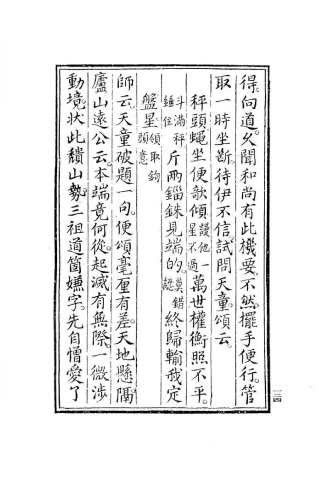 得。向道。久聞和尚有此機要。不然擺手便行。管
取一時坐斷。待伊不信試問天童。頌云。
秤頭蠅坐便欹傾謾他一星不過萬世權衡照不平。
斗滿秤錘住斤兩錙銖見端的。莫錯認終歸輸我定
盤星。領取鉤頭意
師云。天童破題一句。便頌毫厘有差。天地懸隔
廬山遠公云。本端竟何從。起滅有無際。一微涉
動境。狀此頹山勢。三祖道箇嫌字。先自憎愛了
三四